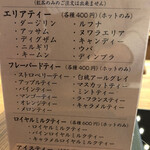 (紅茶のみのご注文は出来ません)
エリアティー (各種400円)(ホットのみ)
・ダージリン ・ルフナ
・アッサム ・ヌワラエリア
・ディグダ ・キャンディー
・ニルギリ ・ウバ
・キームン ・ディンブラ
フレーバードティー (各種400円)(ホットのみ)
・ストロベリーティー ・白桃アールグレイ
・アップルティー ・マスカットティー
・パインティー ・ミントティー
・アーモンドティー ・ラ・フランスティー
・キャラメルティー
ロイヤルミルクティー (各種400円)(ホットのみ)
・ロイヤルミルクティー
・キャラメルミルクティー
アイスティー